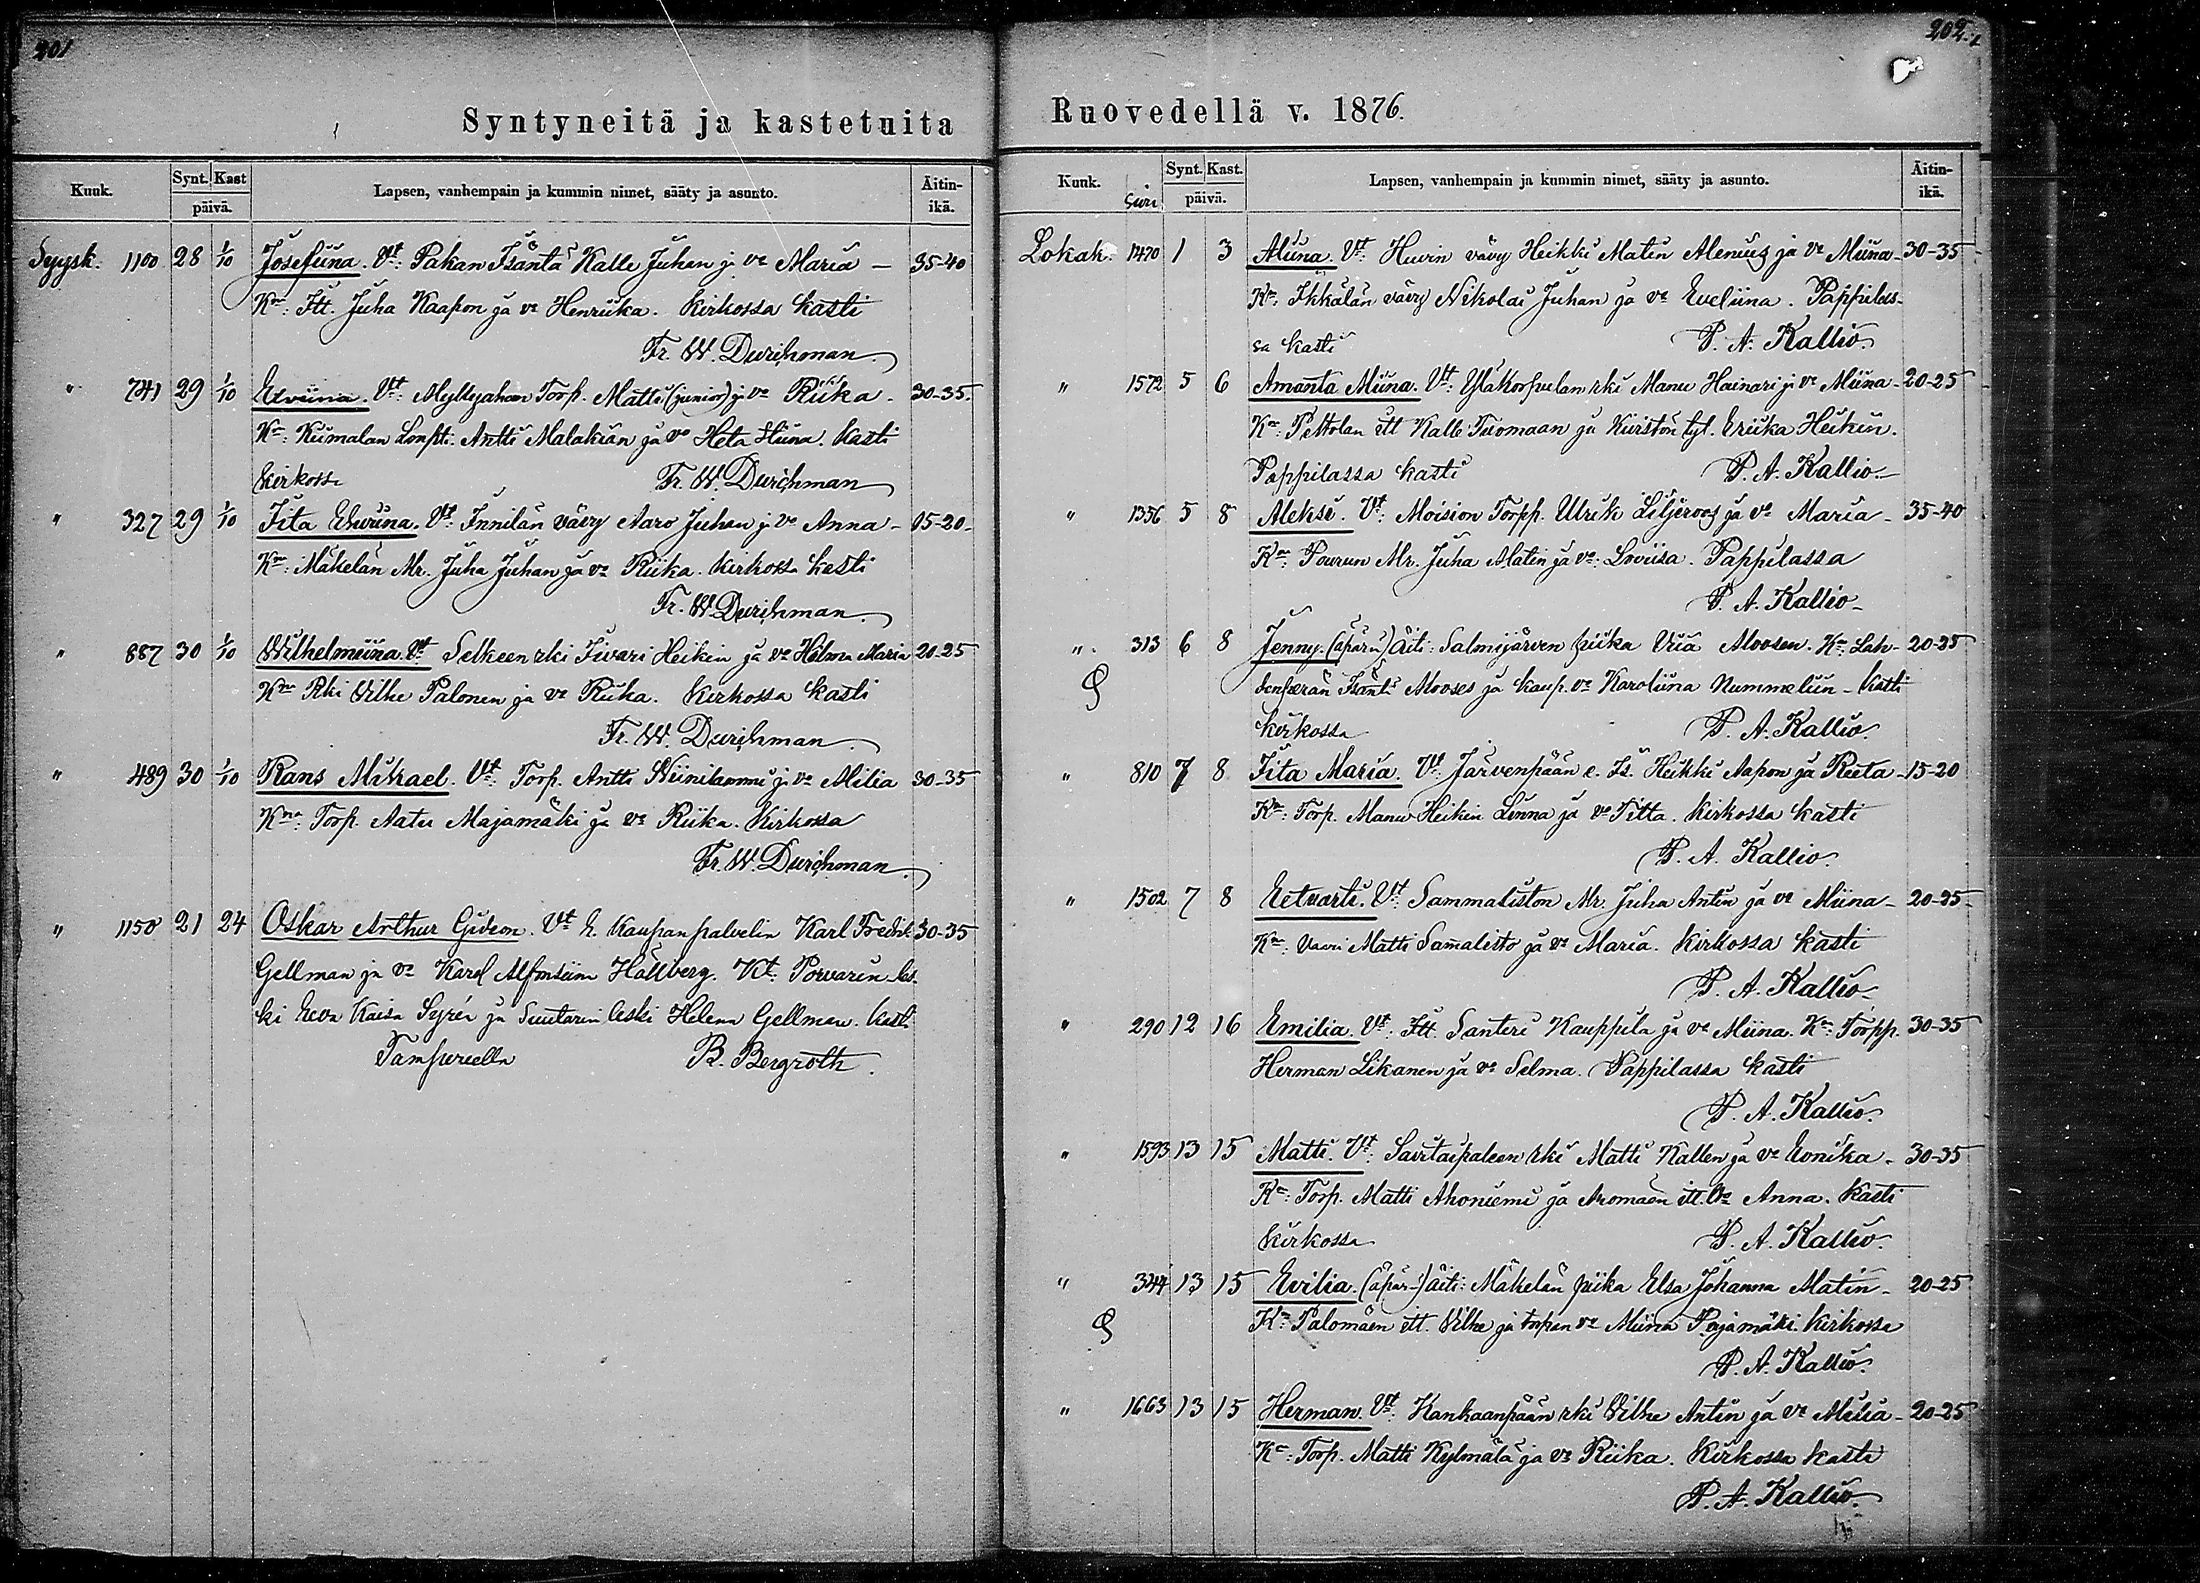 201
Syntyneitä ja kastetuita
Kuuk. Synt. Kast päivä. Lapsen, vanhempain ja kummin nimet, sääty ja asunto. Äitin-ikä.
Syysk. 1100 28 1/10 Josefiina. Vt: Pakan Isäntä Kalle Juhan j. vo Maria — 35-40
Km: Itt. Juha Kaapon ja vo Henriika. Kirkossa kasti
Fr. W. Durchman
" 741 29 1/10 Elviina. Vt: Myllyahon Torp. Matti (junior) j. vo Riika. 30-35.
Km: Keimalan Antti Malakian ja vo Heta Stiina. Kasti
Kirkossa Fr. W. Durchman
" 327 29 1/10 Iita Edviina. Vt: Innilän vävy Aaro Juhan j. vo Anna - 15-20
Km: Mäkelän Mr. Juha Juhan ja vo Riika. Kirkossa kasti
Fr. W. Durchman
" 887 30 1/10 Wilhelmiina. Vt Selkeen rki Iivari Heikin ja vo Hilma Maria 20-25
Km Rki Vilhe Palonen ja vo Riika. Kirkossa kasti
Fr. W. Durchman
" 489 30 1/10 Frans Mikael. Vt: Torp. Antti Niinilammi j. vo Milia 30-35
Km: Torp. Aatu Majamäki ja vo Riika. Kirkossa
Fr. W. Durchman
" 1150 21 24 Oskar Arthur Gideon. Vt E. Kaupanpalvelia Karl Fredrik 30-35
Gellman ja vo Karol Alfonsiina Hällberg. Kt: Porvarin les-
ki Eeva Kaisa Syrén ja Suutarin leski Helena Gellman. Kasti
Tampereella B. Bergroth.
202.
Ruovedellä v. 1876.
Kuuk. Siv: Synt. Kast. päivä. Lapsen, vanhempain ja kummin nimet, sääty ja asunto. Äitin-ikä.
Lokak. 1470 1 3 Aliina. Vt: Huvin vävy Heikki Matin Alenius ja vo Miina - 30-35
Km: Ikkälän vävy Nikolai Juhan ja vo Eveliina. Pappilas-
sa kasti P. A. Kallio.
" 1572 5 6 Amanta Miina. Vt: Yläkorpulan rki Manu Hainari j. vo Miina - 20-25
Km: Pettolan itt Kalle Tuomaan ja Kuriston tyt. Eriika Heikin.
Pappilassa kasti P. A. Kallio.
" 1356 5 8 Aleksi. Vt: Moision Torpp. Ulrik Liljeroos ja vo Maria - 35-40
Km: Pourun Mr. Juha Matin ja vo: Loviisa. Pappilassa
P. A. Kallio
" 313 6 8 Jenny. (äpärä) Äiti: Salmijärven piika Viia Moosen. Km: Lah- 20-25
denperän Isäntä Mooses ja kaup. vo Karoliina Nummeliin - Kasti
Kirkossa P. A. Kallio.
" 810 7 8 Iita Maria. Vt Järvenpään e. Is. Heikki Aapon ja Reeta - 15-20
Km: Torp. Manu Heikin Linna ja vo Iitta. Kirkossa kasti
P. A. Kallio.
" 1502 7 8 Eetvarti. Vt Sammaliston Mr. Juha Antin ja vo Miina - 20-25
Km: Vaari Matti Samalisto ja vo Maria. Kirkossa kasti
P. A. Kallio
" 290 12 16 Emilia. Vt: Itt. Santeri Kauppila ja vo Miina. Km: Torpp. 30-35
Herman Likanen ja vo Selma. Pappilassa kasti
P. A. Kallio.
" 1593 13 15 Matti. Vt: Savitaipaleen rki Matti Kallen ja vo Eeriika - 30-35
Km: Torp. Matti Ahoniemi ja Aromäen itt. vo Anna. Kasti
Kirkossa P. A. Kallio.
" 344 13 15 Evilia. (äpär-) Äiti: Mäkelän piika Elsa Johanna Matin - 20-25
Km: Palomäen itt. Vilhe ja torpan vo Miina Pajamäki. Kirkossa
P. A. Kallio.
" 1663 13 15 Herman. Vt: Kankaanpään rki Vilhe Antin ja vo Milia - 20-25
Km: Torp. Matti Kylmälä ja vo Riika. Kirkossa kasti
P. A. Kallio.